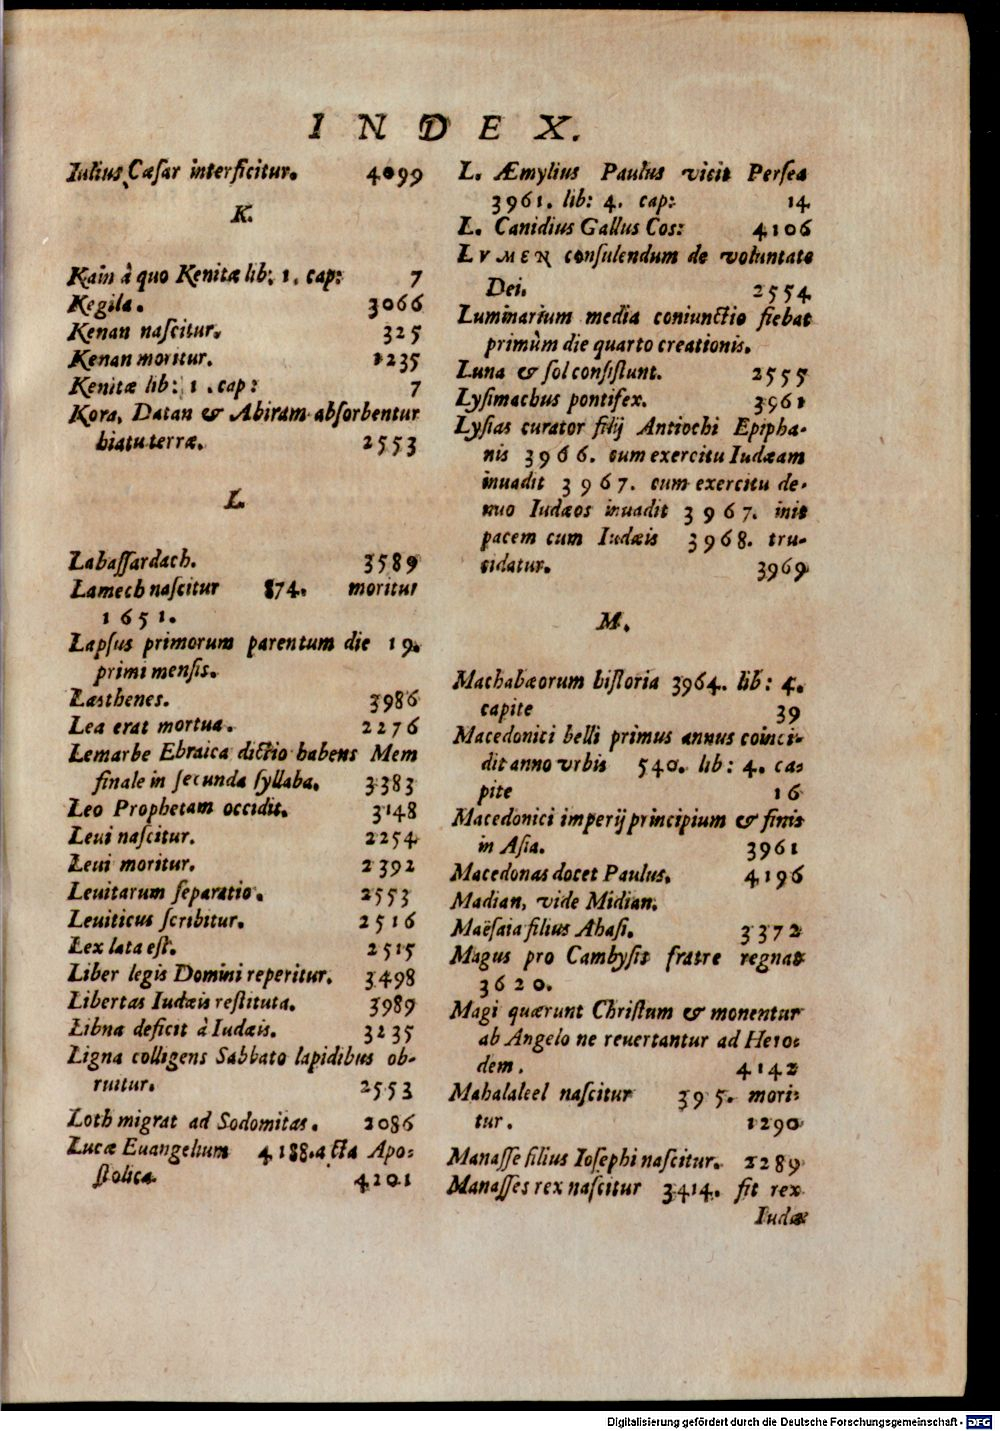 INDEX.
Iulius Cæsar interficitur. 4099
K.
Kain à quo Kenitæ lib: 1. cap: 7
Kegila. 3066
Kenan naſcitur. 325
Kenan moritur. 1235
Kenitæ lib: 1. cap: 7
Kora, Datan & Abiram abſorbentur
hiatu terræ. 2553
L.
Labaſſardach. 3589
Lamech naſcitur 874. moritur
1651.
Lapſus primorum parentum die 19.
primi menſis.
Laſthenes. 3986
Lea erat mortua. 2276
Lemarbe Ebraica dictio habens Mem
finale in ſecunda ſyllaba. 3383
Leo Prophetam occidit. 3148
Leui naſcitur. 2254
Leui moritur. 2392
Leuitarum ſeparatio. 2553
Leuiticus ſcribitur. 2516
Lex lata eſt. 2515
Liber legis Domini reperitur. 3498
Libertas Iudæis reſtituta. 3989
Libna deficit à Iudæis. 3235
Ligna colligens Sabbato lapidibus ob-
ruitur. 2553
Loth migrat ad Sodomitas. 2086
Lucæ Euangelium 4188. acta Apo:
ſtolica. 4201
L. Æmylius Paulus vicit Perſea
3961. lib: 4. cap: 14
L. Canidius Gallus Cos: 4106
LVMEN conſulendum de voluntate
Dei. 2554
Luminarium media coniunctio fiebat
primùm die quarto creationis.
Luna & ſol conſiſtunt. 2555
Lyſimachus pontifex. 3961
Lyſias curator filij Antiochi Epipha-
nis 3966. cum exercitu Iudæam
inuadit 3967. cum exercitu de-
nuo Iudæos inuadit 3967. init
pacem cum Iudæis 3968. tru-
cidatur. 3969
M.
Machabæorum hiſtoria 3964. lib: 4.
capite 39
Macedonici belli primus annus coinci-
dit anno vrbis 540. lib: 4. ca:
pite 16
Macedonici imperij principium & finis
in Aſia. 3961
Macedonas docet Paulus. 4196
Madian, vide Midian.
Maëſaia filius Ahaſi. 3372
Magus pro Cambyſis fratre regnat
3620.
Magi quærunt Chriſtum & monentur
ab Angelo ne reuertantur ad Hero:
dem. 4142
Mahalaleel naſcitur 395. mori:
tur. 1290
Manaſſe filius Ioſephi naſcitur. 2289
Manaſſes rex naſcitur 3414. fit rex
Iudæ
Digitalisierung gefördert durch die Deutsche Forschungsgemeinschaft - DFG